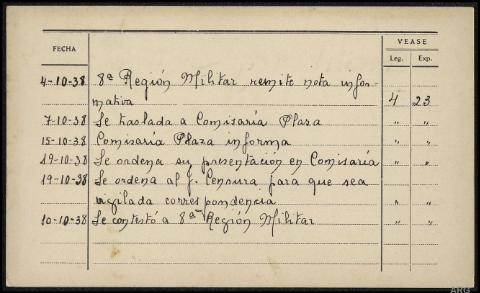 FECHA VEASE
Leg. Exp.
4-10-38 8ª Región Militar remite nota infor-
mativa 4 23
7-10-38 Se traslada a Comisaría Plaza " "
15-10-38 Comisaría Plaza informa " "
19-10-38 Se ordena su presentación en Comisaría " "
19-10-38 Se ordena al J. Censura para que sea
vigilada correspondencia " "
10-10-38 Se contestó a 8ª Región Militar " "
ARG